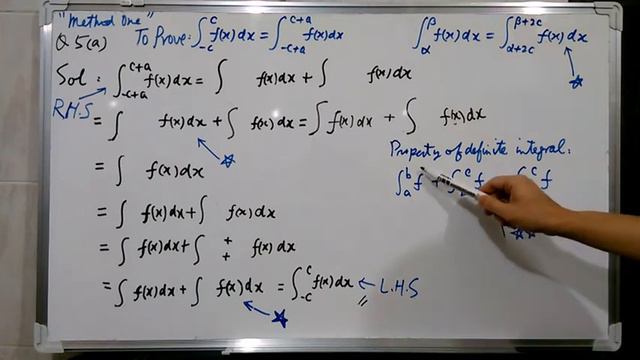 "Method One"
Q5(a) To Prove: ∫_{-c}^{c} f(x)dx = ∫_{-c+a}^{c+a} f(x)dx ∫_α^β f(x)dx = ∫_{α+2c}^{β+2c} f(x)dx
Sol: ∫_{-c+a}^{c+a} f(x)dx = ∫ f(x)dx + ∫ f(x)dx
R.H.S
= ∫ f(x)dx + ∫ f(x)dx = ∫ f(x)dx + ∫ f(x)dx
Property of definite integral:
∫_a^b f + ∫ ^c f ∫ ^c f
= ∫ f(x)dx
= ∫ f(x)dx + ∫ f(x)dx
= ∫ f(x)dx + ∫ + + f(x)dx
= ∫ f(x)dx + ∫ f(x)dx = ∫_{-c}^{c} f(x)dx ← L.H.S